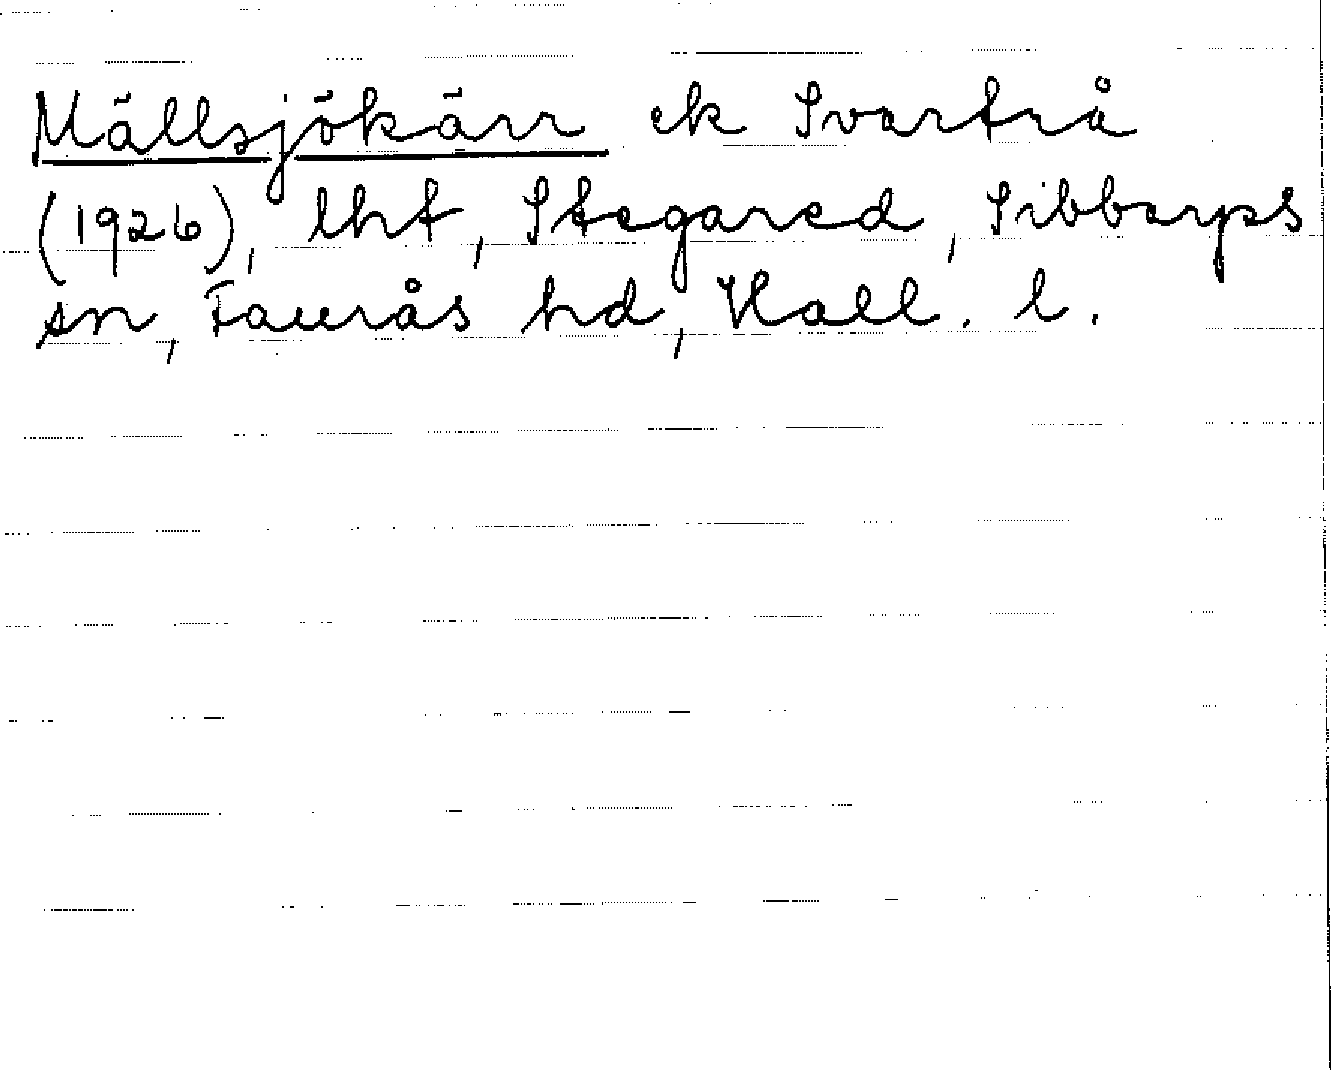 Mällsjökärr ek Svartrå
(1926), lht, Stegared, Sibbarps
sn, Faurås hd, Hall. l.